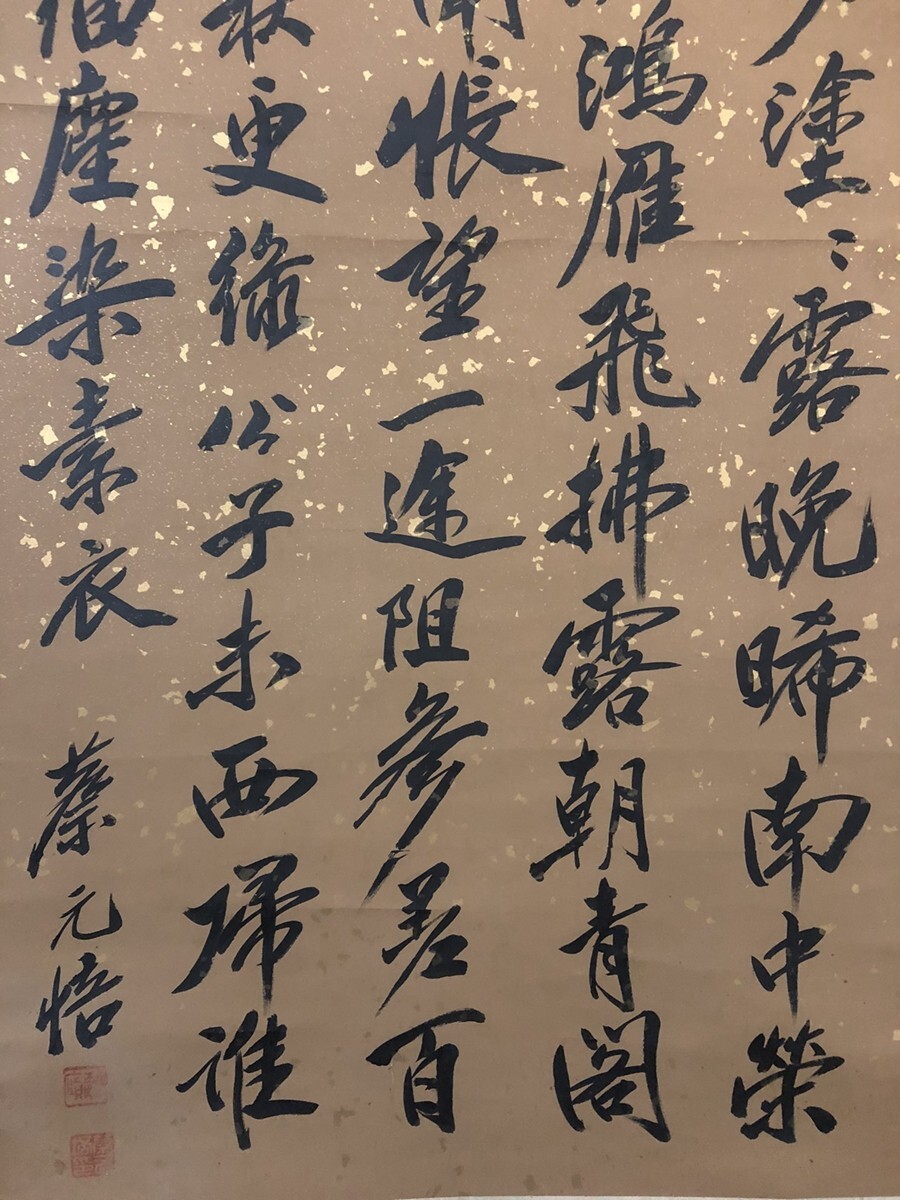 塗〻露晚晞南中榮
鴻雁飛拂露朝青閣
悵望一途阻參差百
更綠公子未西歸誰
塵染素衣
蔡元悟